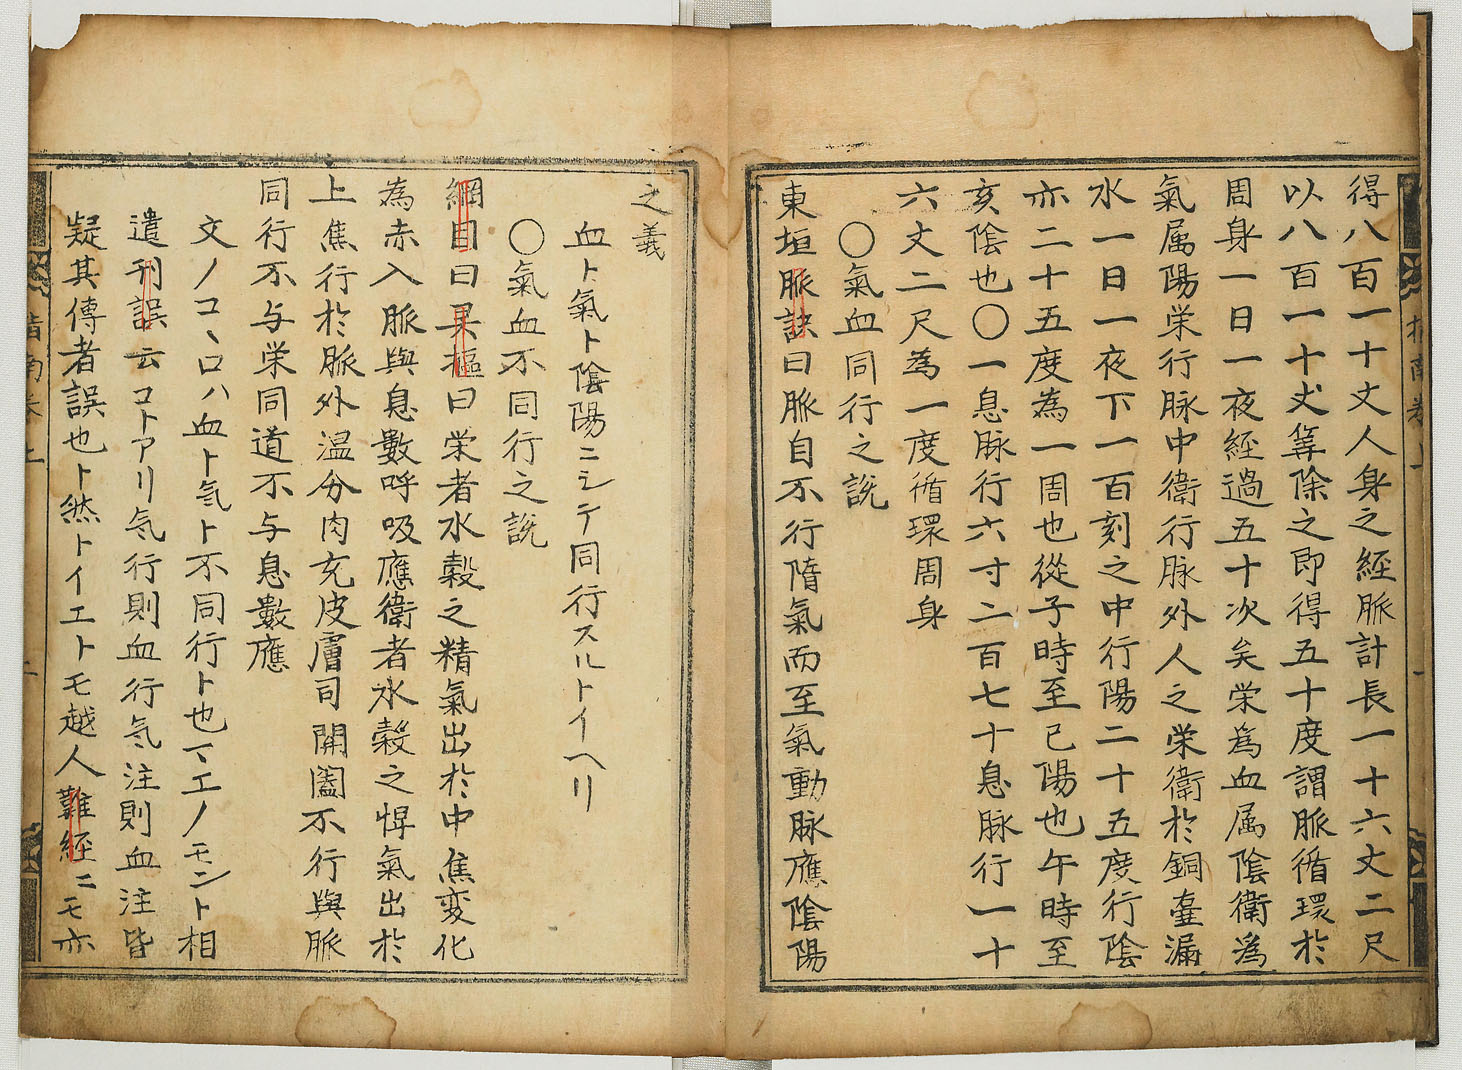 得八百一十丈人身之經脈計長一十六丈二尺
以八百一十丈筭除之即得五十度謂脈循環於
周身一日一夜經過五十次矣栄為血属陰衛為
氣属陽栄行脉中衛行脉外人之栄衛於銅臺漏
水一日一夜下一百刻之中行陽二十五度行陰
亦二十五度為一周也從子時至巳陽也午時至
亥陰也〇一息脉行六寸二百七十息脉行一十
六丈二尺為一度循環周身
〇氣血同行之説
東垣脈訣曰脈自不行隨氣而至氣動脉應陰陽
之義
血ト氣ト陰陽ニシテ同行スルトイヘリ
〇氣血不同行之説
綱目曰昗樞曰栄者水穀之精氣出於中焦変化
為赤入脈與息數呼吸應衛者水穀之悍氣出於
上焦行於脈外温分肉充皮膚司開闔不行與脈
同行不与栄同道不与息數應
文ノコヽロハ血ト気ト不同行ト也マエノモント相
遣刊誤云コトアリ気行則血行気注則血注皆
疑其傳者誤也ト然トイエトモ越人難経ニモ亦
指南巻上